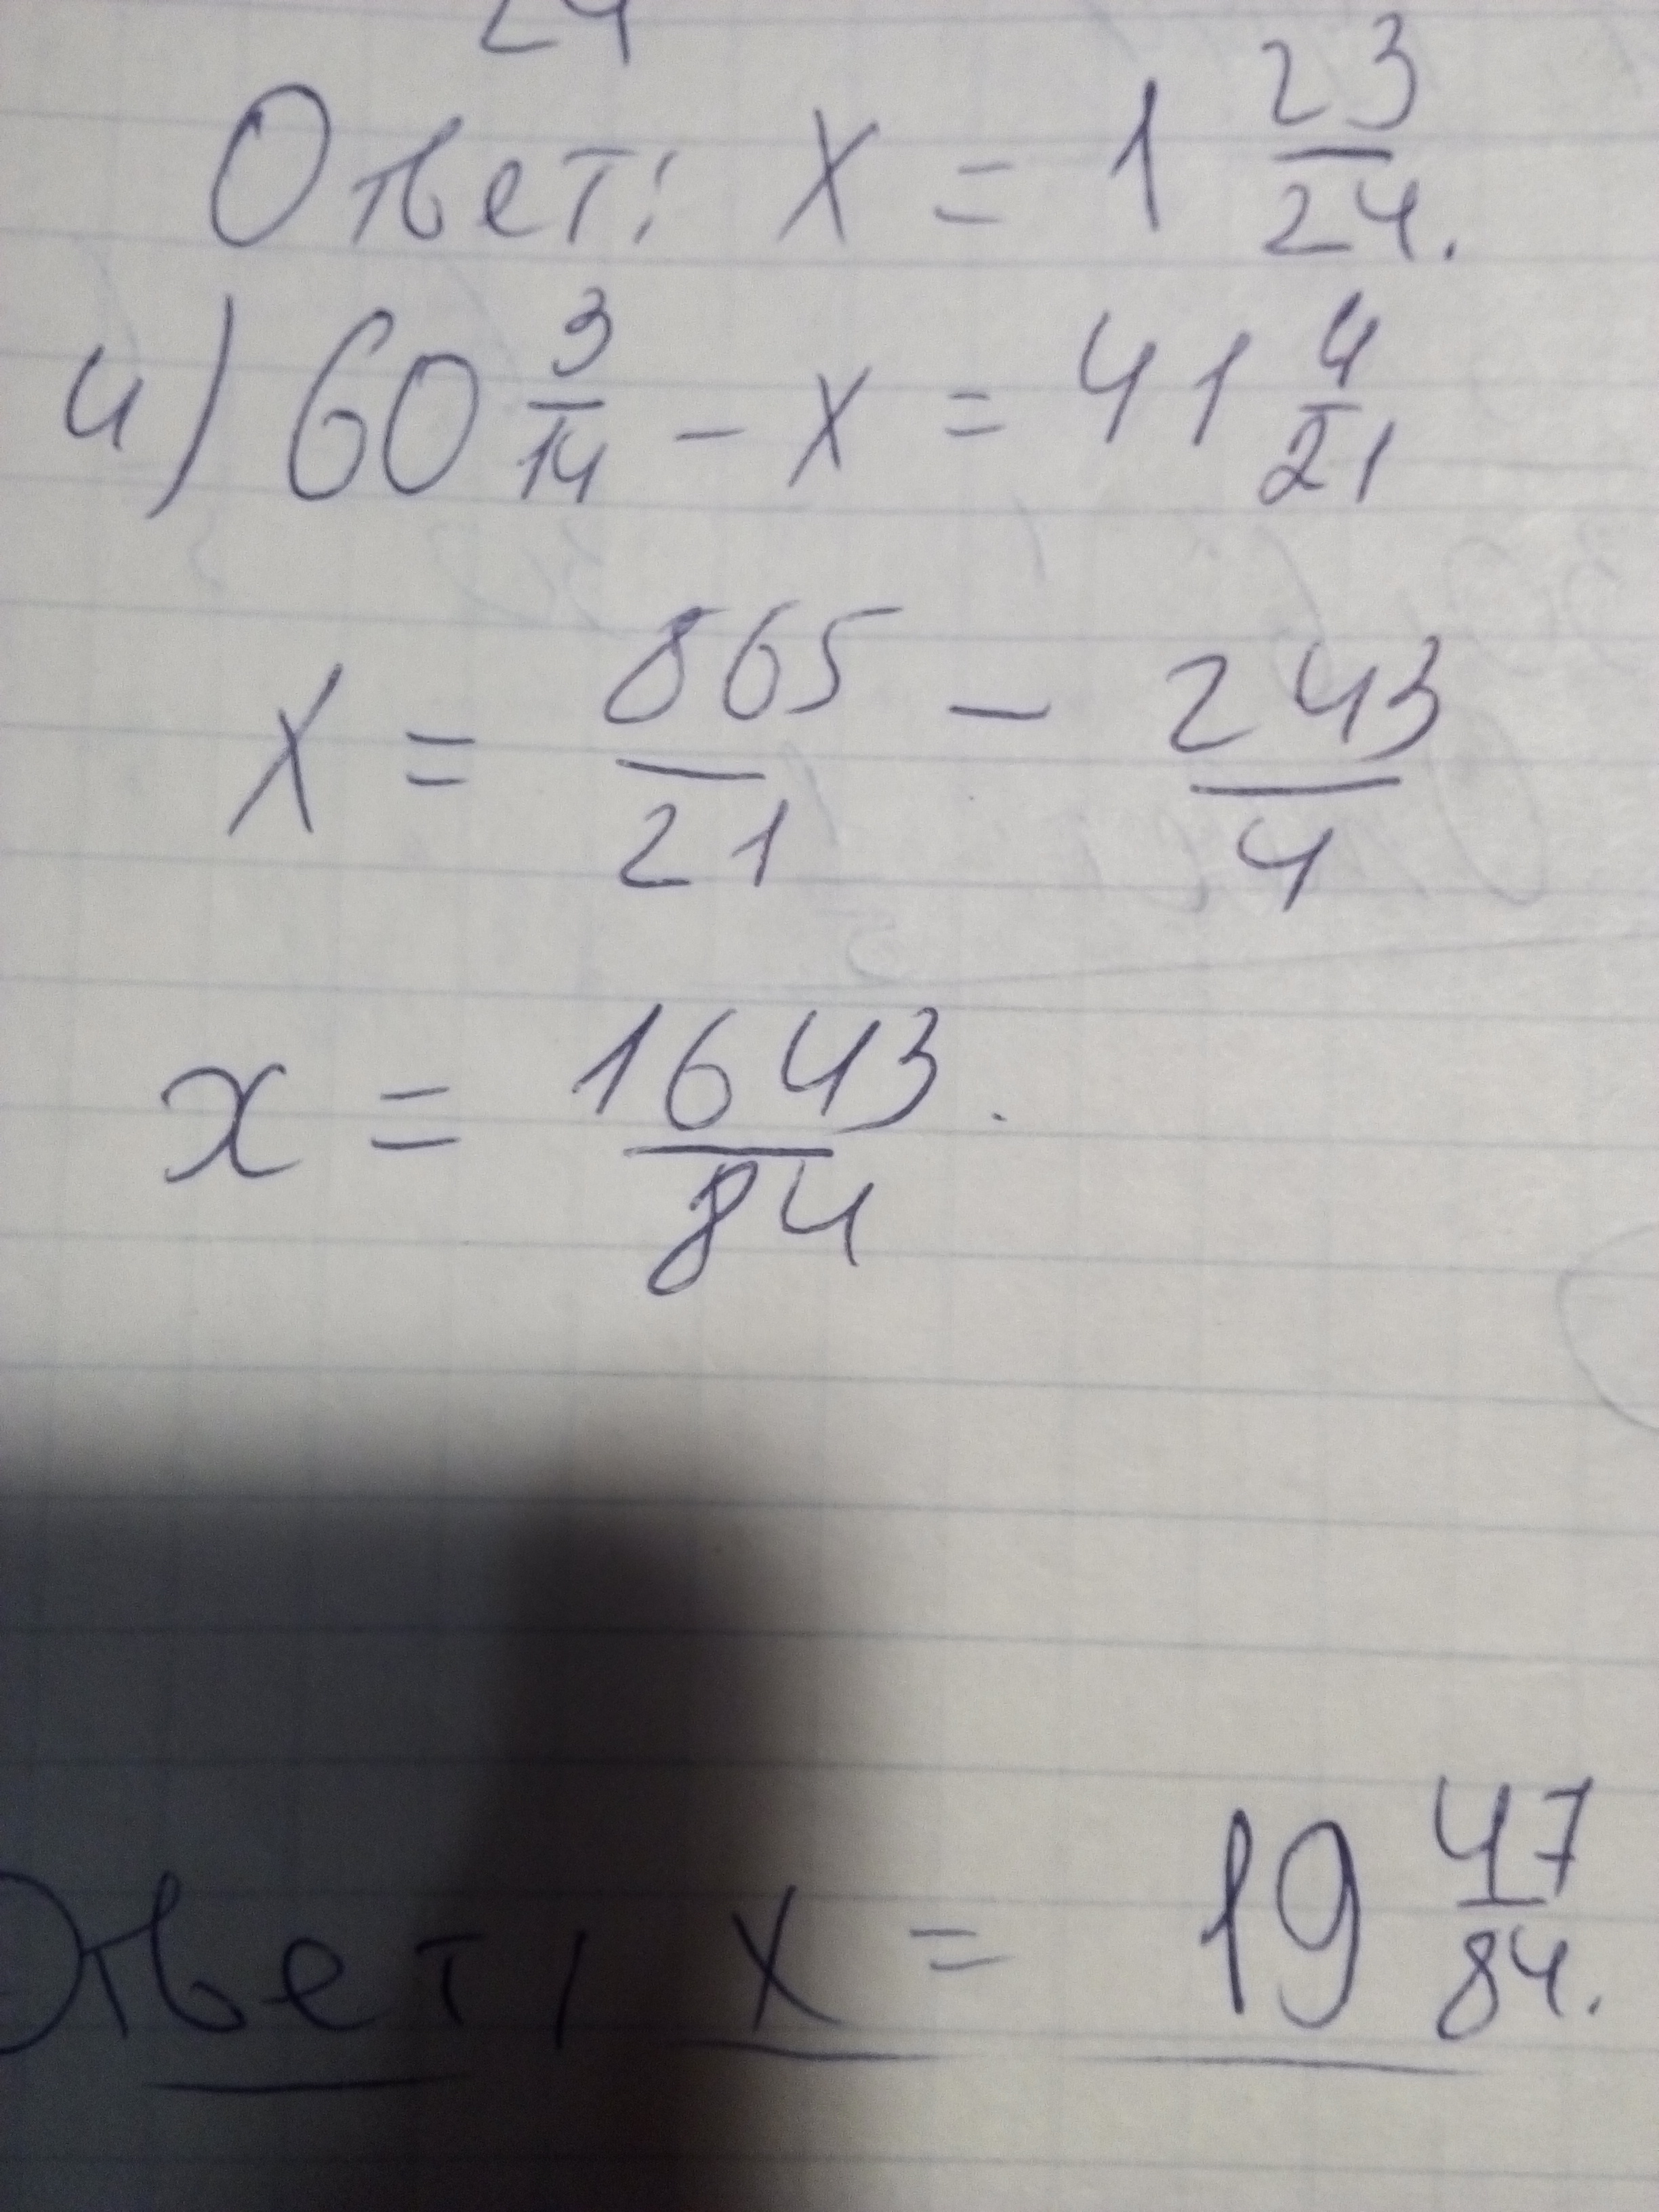 24
Ответ: x = 1 23/24.
4) 60 3/14 - x = 41 4/21
x = 865/21 - 243/4
x = 1643/84.
Ответ: x = 19 47/84.